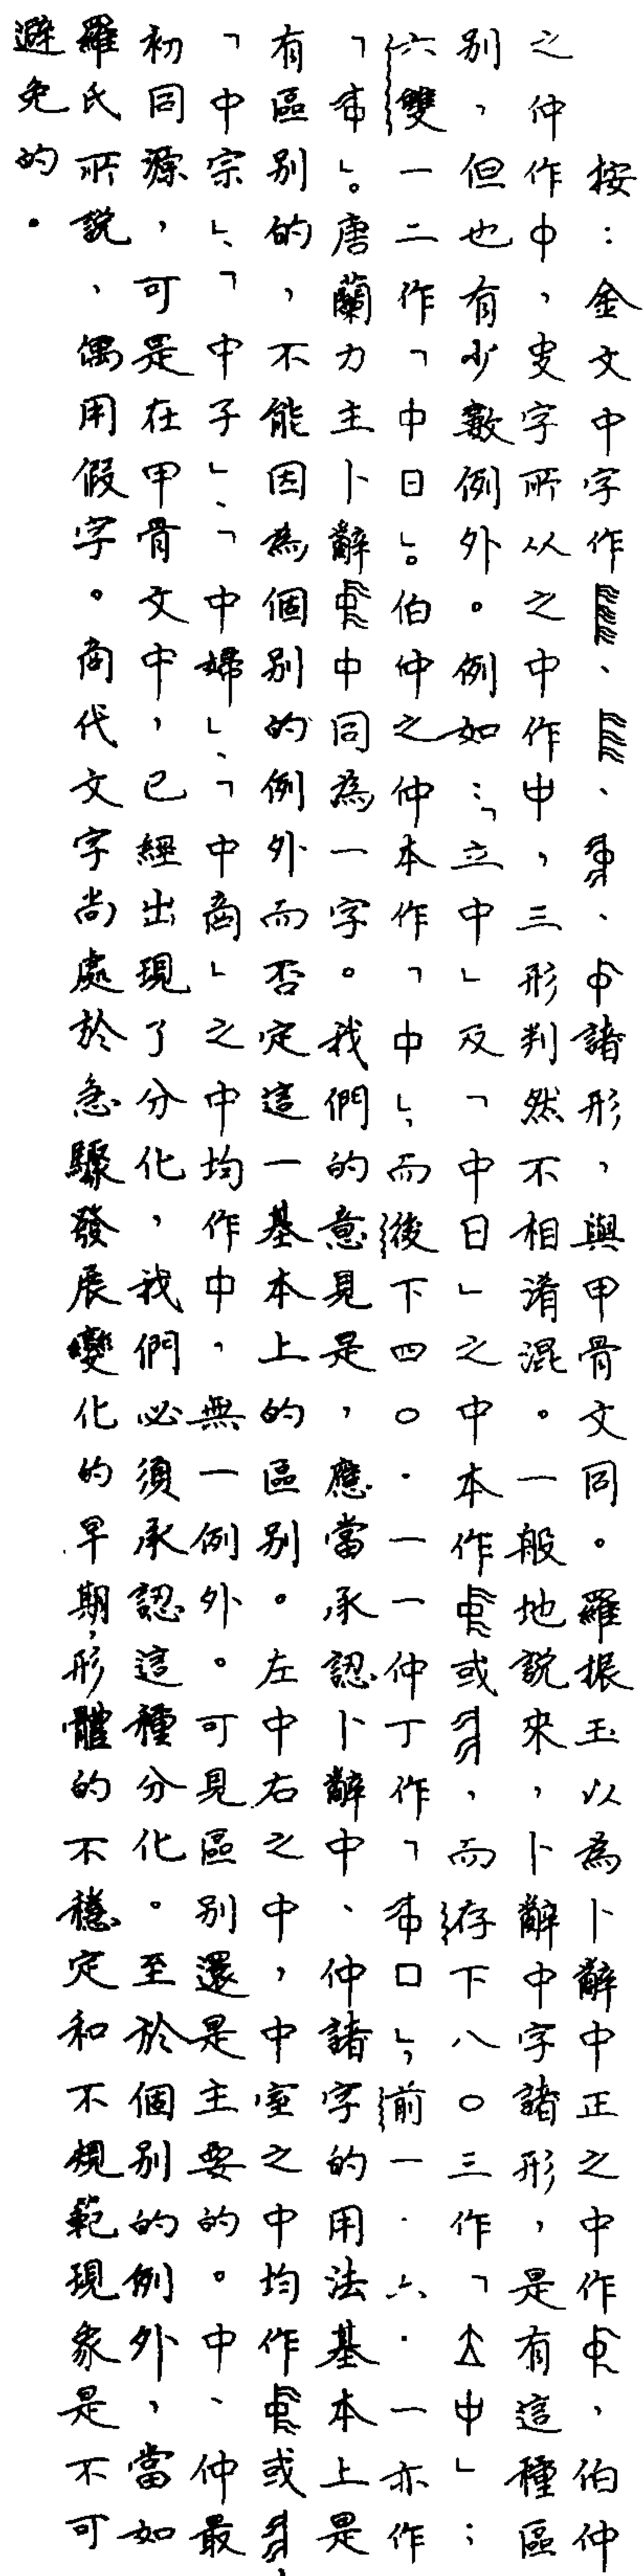 按：金文中字作、、、諸形，與甲骨文同。羅振玉以為卜辭中正之中作，伯仲
之仲作中，史字所从之中作中，三形判然不相淆混。一般地說來，卜辭中字諸形，是有這種區
別，但也有少數例外。例如：「立中」及「中日」之中本作或，而存下八〇三作「立中」；
六雙一二作「中日」。伯仲之仲本作「中」；而後下四〇·一一仲丁作「口」；前一·六·一亦作
「」。唐蘭力主卜辭中同為一字。我們的意見是，應當承認卜辭中、仲諸字的用法基本上是
有區別的，不能因為個別的例外而否定這一基本上的區別。左中右之中，中室之中均作或，
「中宗」、「中子」、「中婦」、「中商」之中均作中，無一例外。可見區別還是主要的。中、仲最
初同源，可是在甲骨文中，已經出現了分化，我們必須承認這種分化。至於個別的例外，當如
羅氏所說，偶用假字。商代文字尚處於急驟發展變化的早期，形體的不穩定和不規範現象是不可
避免的。